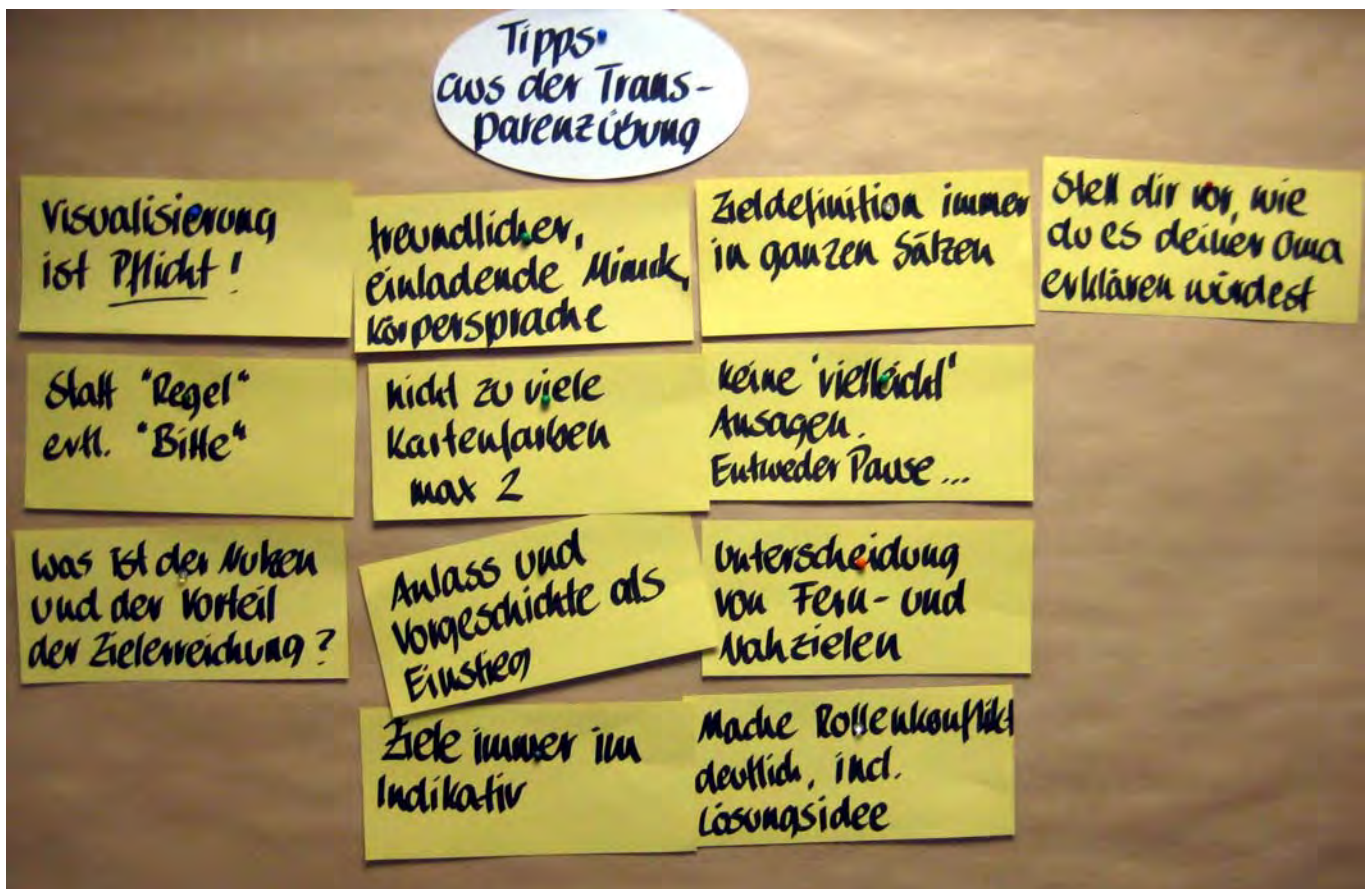 Tipps
aus der Trans-
parenzübung
Visualisierung
ist Pflicht!
Statt "Regel"
evtl. "Bitte"
Was ist der Nutzen
und der Vorteil
der Zielerreichung?
freundlicher,
einladende Mimik,
Körpersprache
nicht zu viele
Kartenfarben
max 2
Anlass und
Vorgeschichte als
Einstieg
Ziele immer im
Indikativ
Zieldefinition immer
in ganzen Sätzen
keine "vielleicht"
Ansagen.
Entweder Pause...
Unterscheidung
von Fern- und
Nahzielen
Mache Rollenkonflikt
deutlich, incl.
Lösungsidee
Stell dir vor, wie
du es deiner Oma
erklären würdest